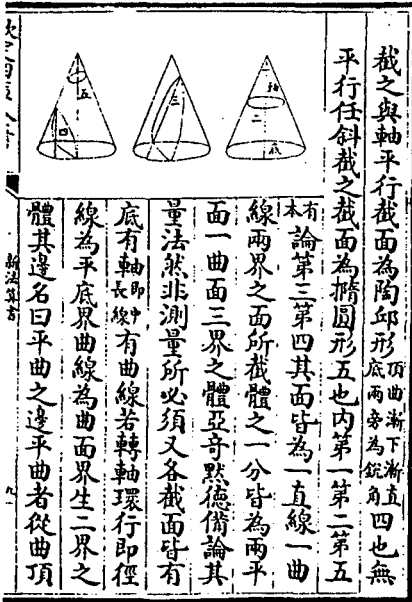 截之與軸平行截面為陶邱形頂曲漸下漸直底兩旁為銳角四也無
平行任斜截之截面為橢圓形五也内第一第二第五
本有論第三第四其面皆為一直線一曲
線兩界之面所截體之一分皆為兩平
面一曲面三界之體亞奇黙德備論其
量法然非測量所必須又各截面皆有
底有軸即中長線有曲線若轉軸環行即徑
線為平底界曲線為曲面界生二界之
體其邊名曰平曲之邊平曲者從曲頂
一
二
底
三
五
四
新法算書